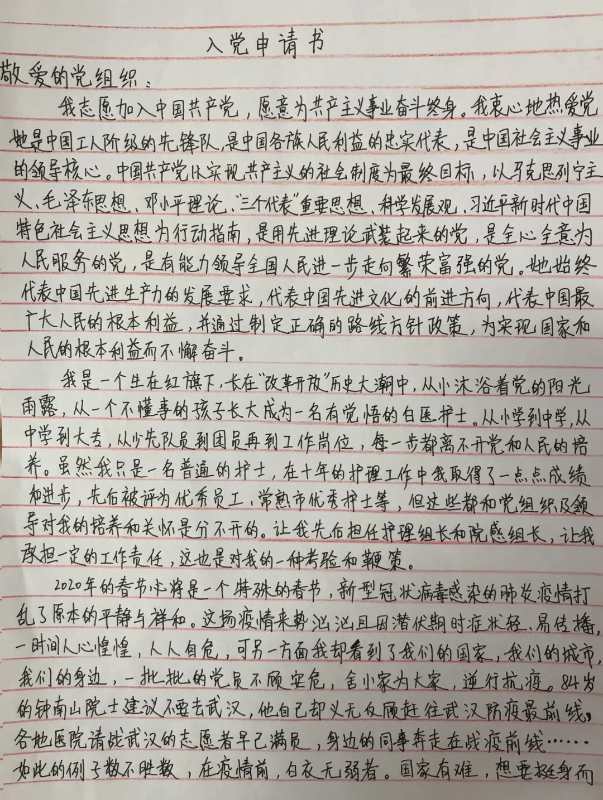 入党申请书
敬爱的党组织：
我志愿加入中国共产党，愿意为共产主义事业奋斗终身。我衷心地热爱党
她是中国工人阶级的先锋队，是中国各族人民利益的忠实代表，是中国社会主义事业
的领导核心。中国共产党以实现共产主义的社会制度为最终目标，以马克思列宁主
义、毛泽东思想、邓小平理论、“三个代表”重要思想、科学发展观、习近平新时代中国
特色社会主义思想为行动指南，是用先进理论武装起来的党，是全心全意为
人民服务的党，是有能力领导全国人民进一步走向繁荣富强的党。她始终
代表中国先进生产力的发展要求，代表中国先进文化的前进方向，代表中国最
广大人民的根本利益，并通过制定正确的路线方针政策，为实现国家和
人民的根本利益而不懈奋斗。
我是一个生在红旗下，长在“改革开放”历史大潮中，从小沐浴着党的阳光
雨露，从一个不懂事的孩子长大成为一名有觉悟的白医护士。从小学到中学，从
中学到大专，从少先队员到团员再到工作岗位，每一步都离不开党和人民的培
养。虽然我只是一名普通的护士，在十年的护理工作中我取得了一点点成绩
和进步，先后被评为优秀员工、常熟市优秀护士等，但这些都和党组织及领
导对我的培养和关怀是分不开的。让我先后担任护理组长和院感组长，让我
承担一定的工作责任，这也是对我的一种考验和鞭策。
2020年的春节必将是一个特殊的春节，新型冠状病毒感染的肺炎疫情打
乱了原本的平静与祥和。这场疫情来势汹汹且因潜伏期时症状轻、易传播，
一时间人心惶惶，人人自危，可另一方面我却看到了我们的国家，我们的城市，
我们的身边，一批批的党员不顾安危，舍小家为大家，逆行抗疫。84岁
的钟南山院士建议不要去武汉，他自己却义无反顾赶往武汉防疫最前线。
各地医院请战武汉的志愿者早已满员，身边的同事奔走在战疫前线……
如此的例子数不胜数，在疫情前，白衣无弱者。国家有难，想要挺身而